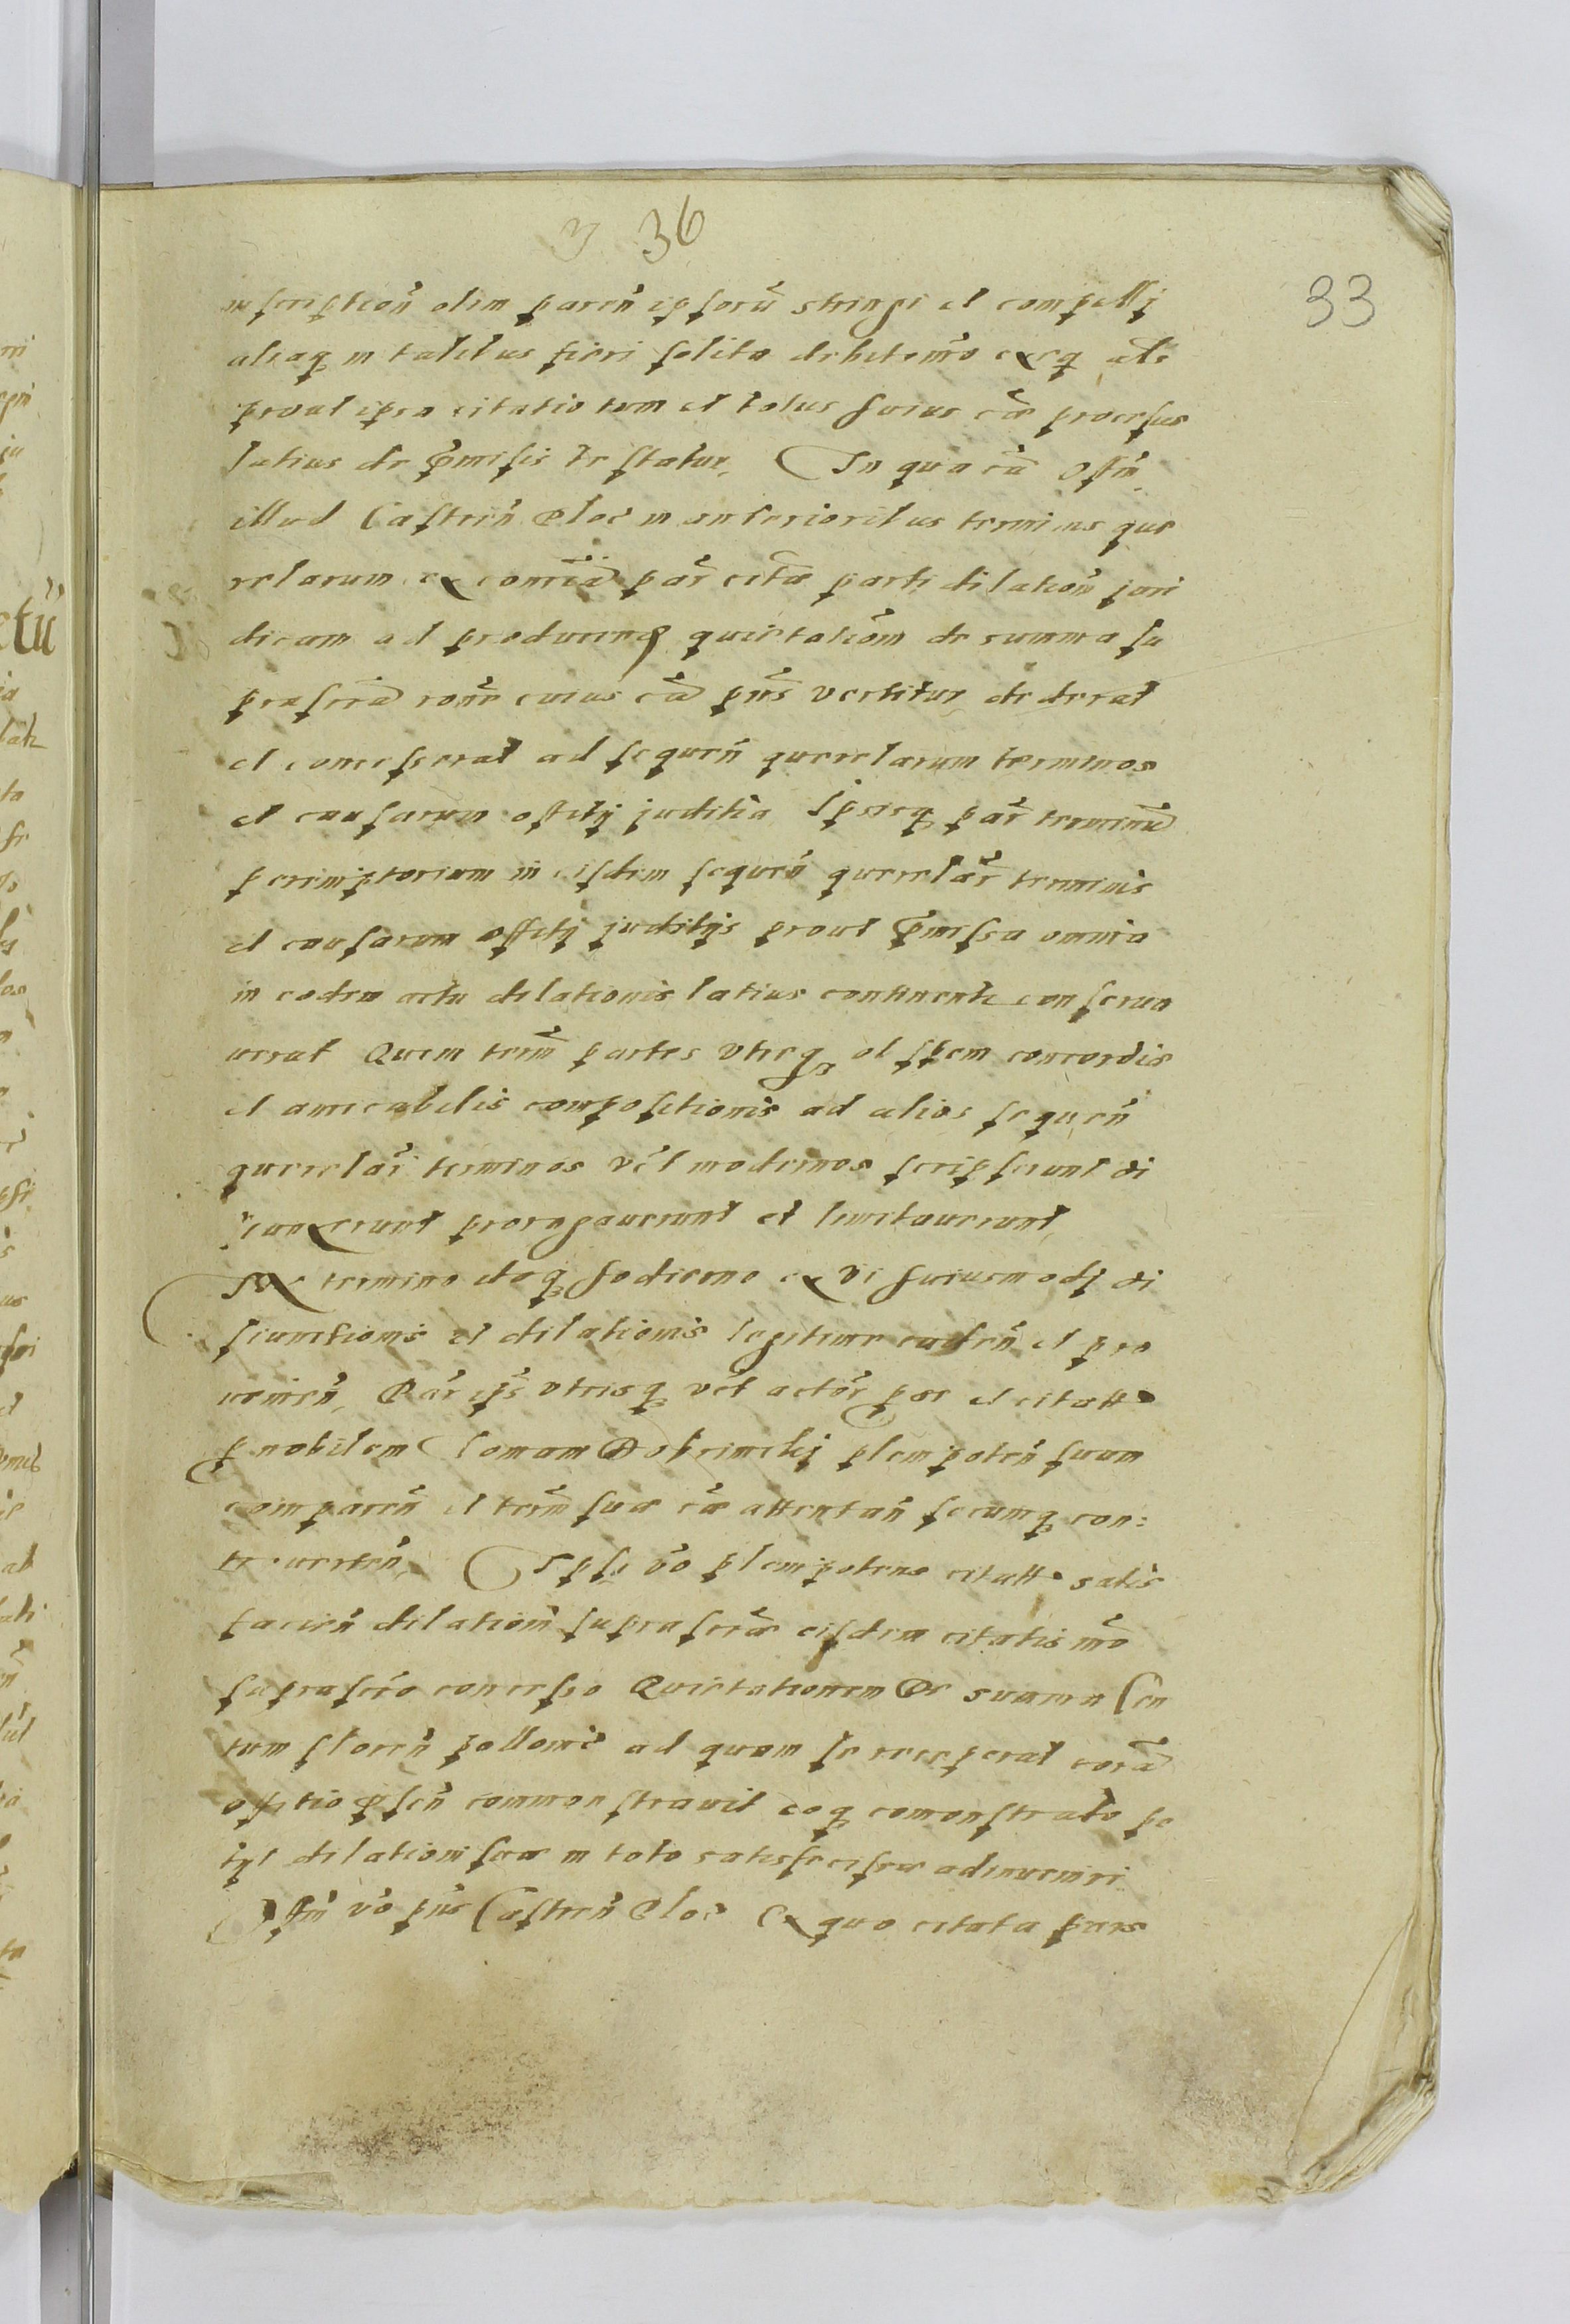 36
33
inscription̄ olim paren̄ ipsorū stringi et compellj
aliaq in talibus fieri solita debito mō exeq etc
prout ipsa citatio tum et totus huius cāe processus
latius de p̄missis testatur, In qua cā Offm̄
illud Castren̄ Ploc̄ in anterioribus terminis que
relarum ex contr̄ia par̄ citā parti dilation̄ juri
dicam ad producend quietatiōm de summa su
prascr̄a rōne cuius cā pn̄s vertitur dederat
et concesserat ad sequen̄ querelarum terminos
et causarum officij juditia Ipsisq par̄ terminū
peremptorium in eisdem sequen̄ querelar̄ terminis
et causarum officij juditijs prout p̄missa omnia
in eodem actu dilationis latius continenti conserva
verat Quem term̄ partes vtreq ob spem concordis
et amicabilis compositionis ad alios sequen̄
querelar̄ terminos vēl modernos scripserunt di
iunxerunt prorogaverunt et limitaverunt,
In termino itaq hodierno ex vi huiusmodj di
siunctionis et dilationis legitime caden̄ et pro
venien̄, Par̄ ip̄s vtrisq vēl actor̄ per se et citatt
p nobilem Tomam Dobrinichj plenipoten̄ suum
comparen̄ et term̄ suæ cāe attentan̄ secumq con:
troverten̄, Ipsē vō plenipotens citatt satis
facien̄ dilationi suprascr̄æ eisdem citatis mō
suprascr̄o concesso Quietationem De summa Cen
tum floren̄ pollonic̄ ad quam se receperat corā
offitio p̄sen̄ commonstravit eoq comonstrato pe
tijt dilationi suæ in toto satisfecisse adinveniri
Offm̄ vō pn̄s Castren̄ Ploc̄ Ex quo citata pars